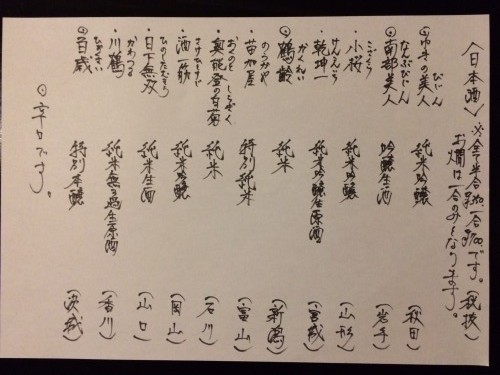 〈日本酒〉※全半合 一合 です。(税抜)
お燗は一合のみとなります。
◎ゆきの美人 純米吟醸 (秋田)
びじん
◎南部美人 吟醸生酒 (岩手)
なんぶびじん
・小桜 純米吟醸 (山形)
こざくら
乾坤一 純米吟醸生原酒 (宮城)
けんこんいち
◎鶴齢 純米 (新潟)
かくれい
・苗加屋 特別純米 (富山)
のうかや
・奥能登の白菊 純米 (石川)
おくのと しらぎく
・酒一筋 純米吟醸 (岡山)
さけひとすじ
・日下無双 純米生酒 (山口)
ひのしたむそう
・川鶴 純米無ろ過生原酒 (香川)
かわつる
◎百歳 特別本醸 (茨城)
ひゃくさい
◎辛口です。